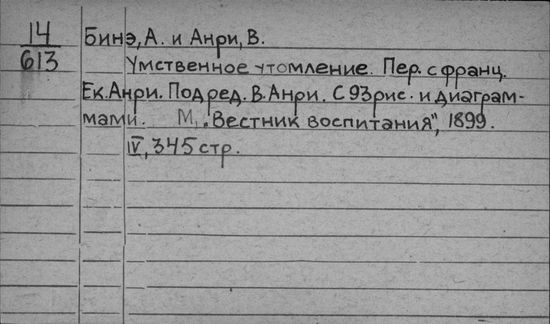 14
613
Бинэ, А. и Анри, В.
Умственное утомление. Пер. с франц.
Ек. Анри. Под ред. В. Анри. С 93 рис. и диаграм-
мами. М., "Вестник воспитания", 1899.
IV, 345 стр.